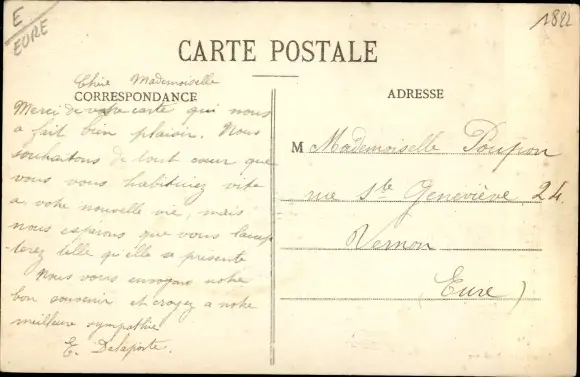 E
EURE
1822
CARTE POSTALE
Chère Mademoiselle
CORRESPONDANCE
ADRESSE
Merci de votre carte qui nous
a fait bien plaisir. Nous
souhaitons de tout cœur que
vous vous habituiez vite
a votre nouvelle vie, mais
nous esperons que vous l'accep
-terez telle qu'elle se presente
Nous vous envoyons notre
bon souvenir et croyez a notre
meilleure sympathie
E. Delaporte.
M Mademoiselle Poupion
rue Ste Geneviève 24
Vernon
(Eure)